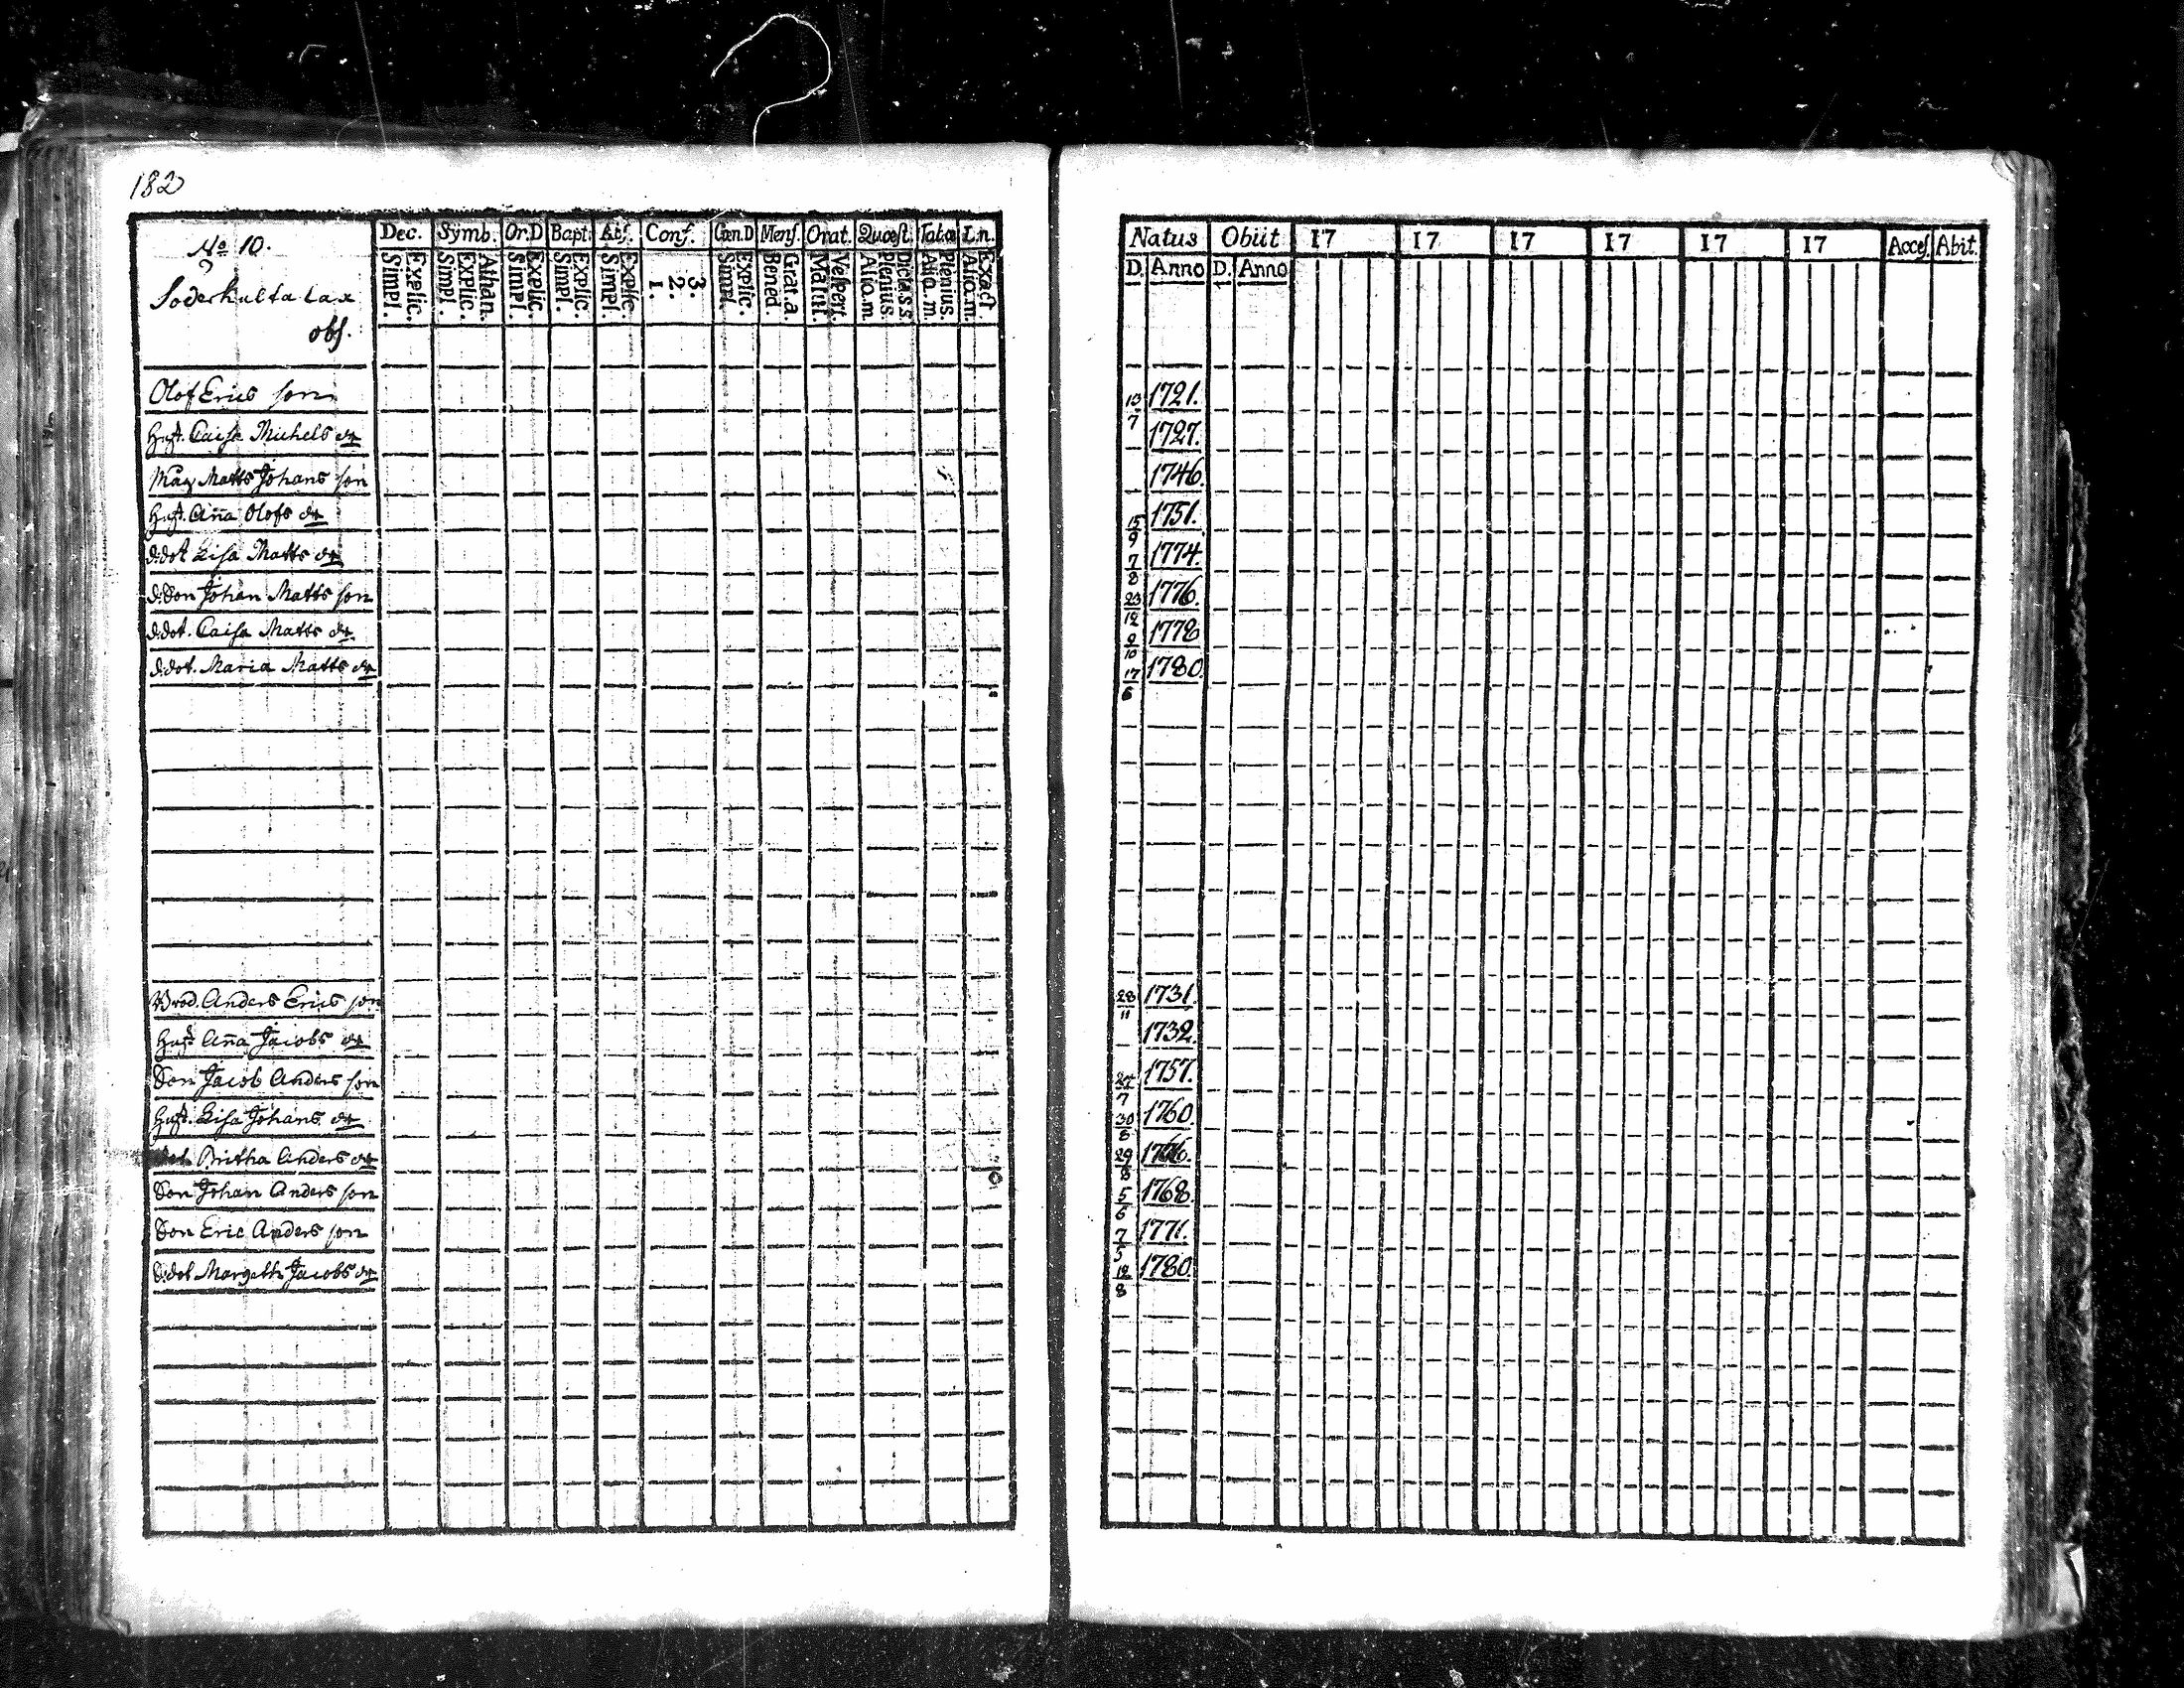 182
No 10.
Söderhultalax
obs.
Dec. Symb. Or.D Bapt. Abs. Conf. Cœn.D Mens. Orat. Quæst. Tabæ L.n.
Simpl. Explic. Simpl. Explic. Athan. Simpl. Explic. Simpl. Explic. Simpl. Explic. 1. 2. 3. Simpl. Explic. Bened. Grat.a. Matut. Vespert. Aliq.m. Plenius. Dicta s.s. Aliq.m. Plenius. Aliq.m. Exact.
Natus Obiit 17 17 17 17 17 17 Acces. Abit.
D. Anno D. Anno
Olof Erics son 13/7 1721.
Hust. Caisa Michels dr 1727.
Måg Matts Johans son 1746.
Hust. Aña Olofs dr 15/9 1751.
d:dot Lisa Matts dr 7/8 1774.
d:Son Johan Matts son 23/12 1776.
d:dot. Caisa Matts dr 2/10 1778
d:dot. Maria Matts dr 17/6 1780.
Brod. Anders Erics son 28/11 1731.
Hust Aña Jacobs dr 1732.
Son Jacob Anders son 27/7 1757.
Hust. Lisa Johans dr 30/8 1760.
dot Britha Anders dr 29/8 1766.
Son Johan Anders son 5/6 1768.
Son Eric Anders son 7/5 1771.
S:dot Margeth Jacobs dr 12/8 1780.